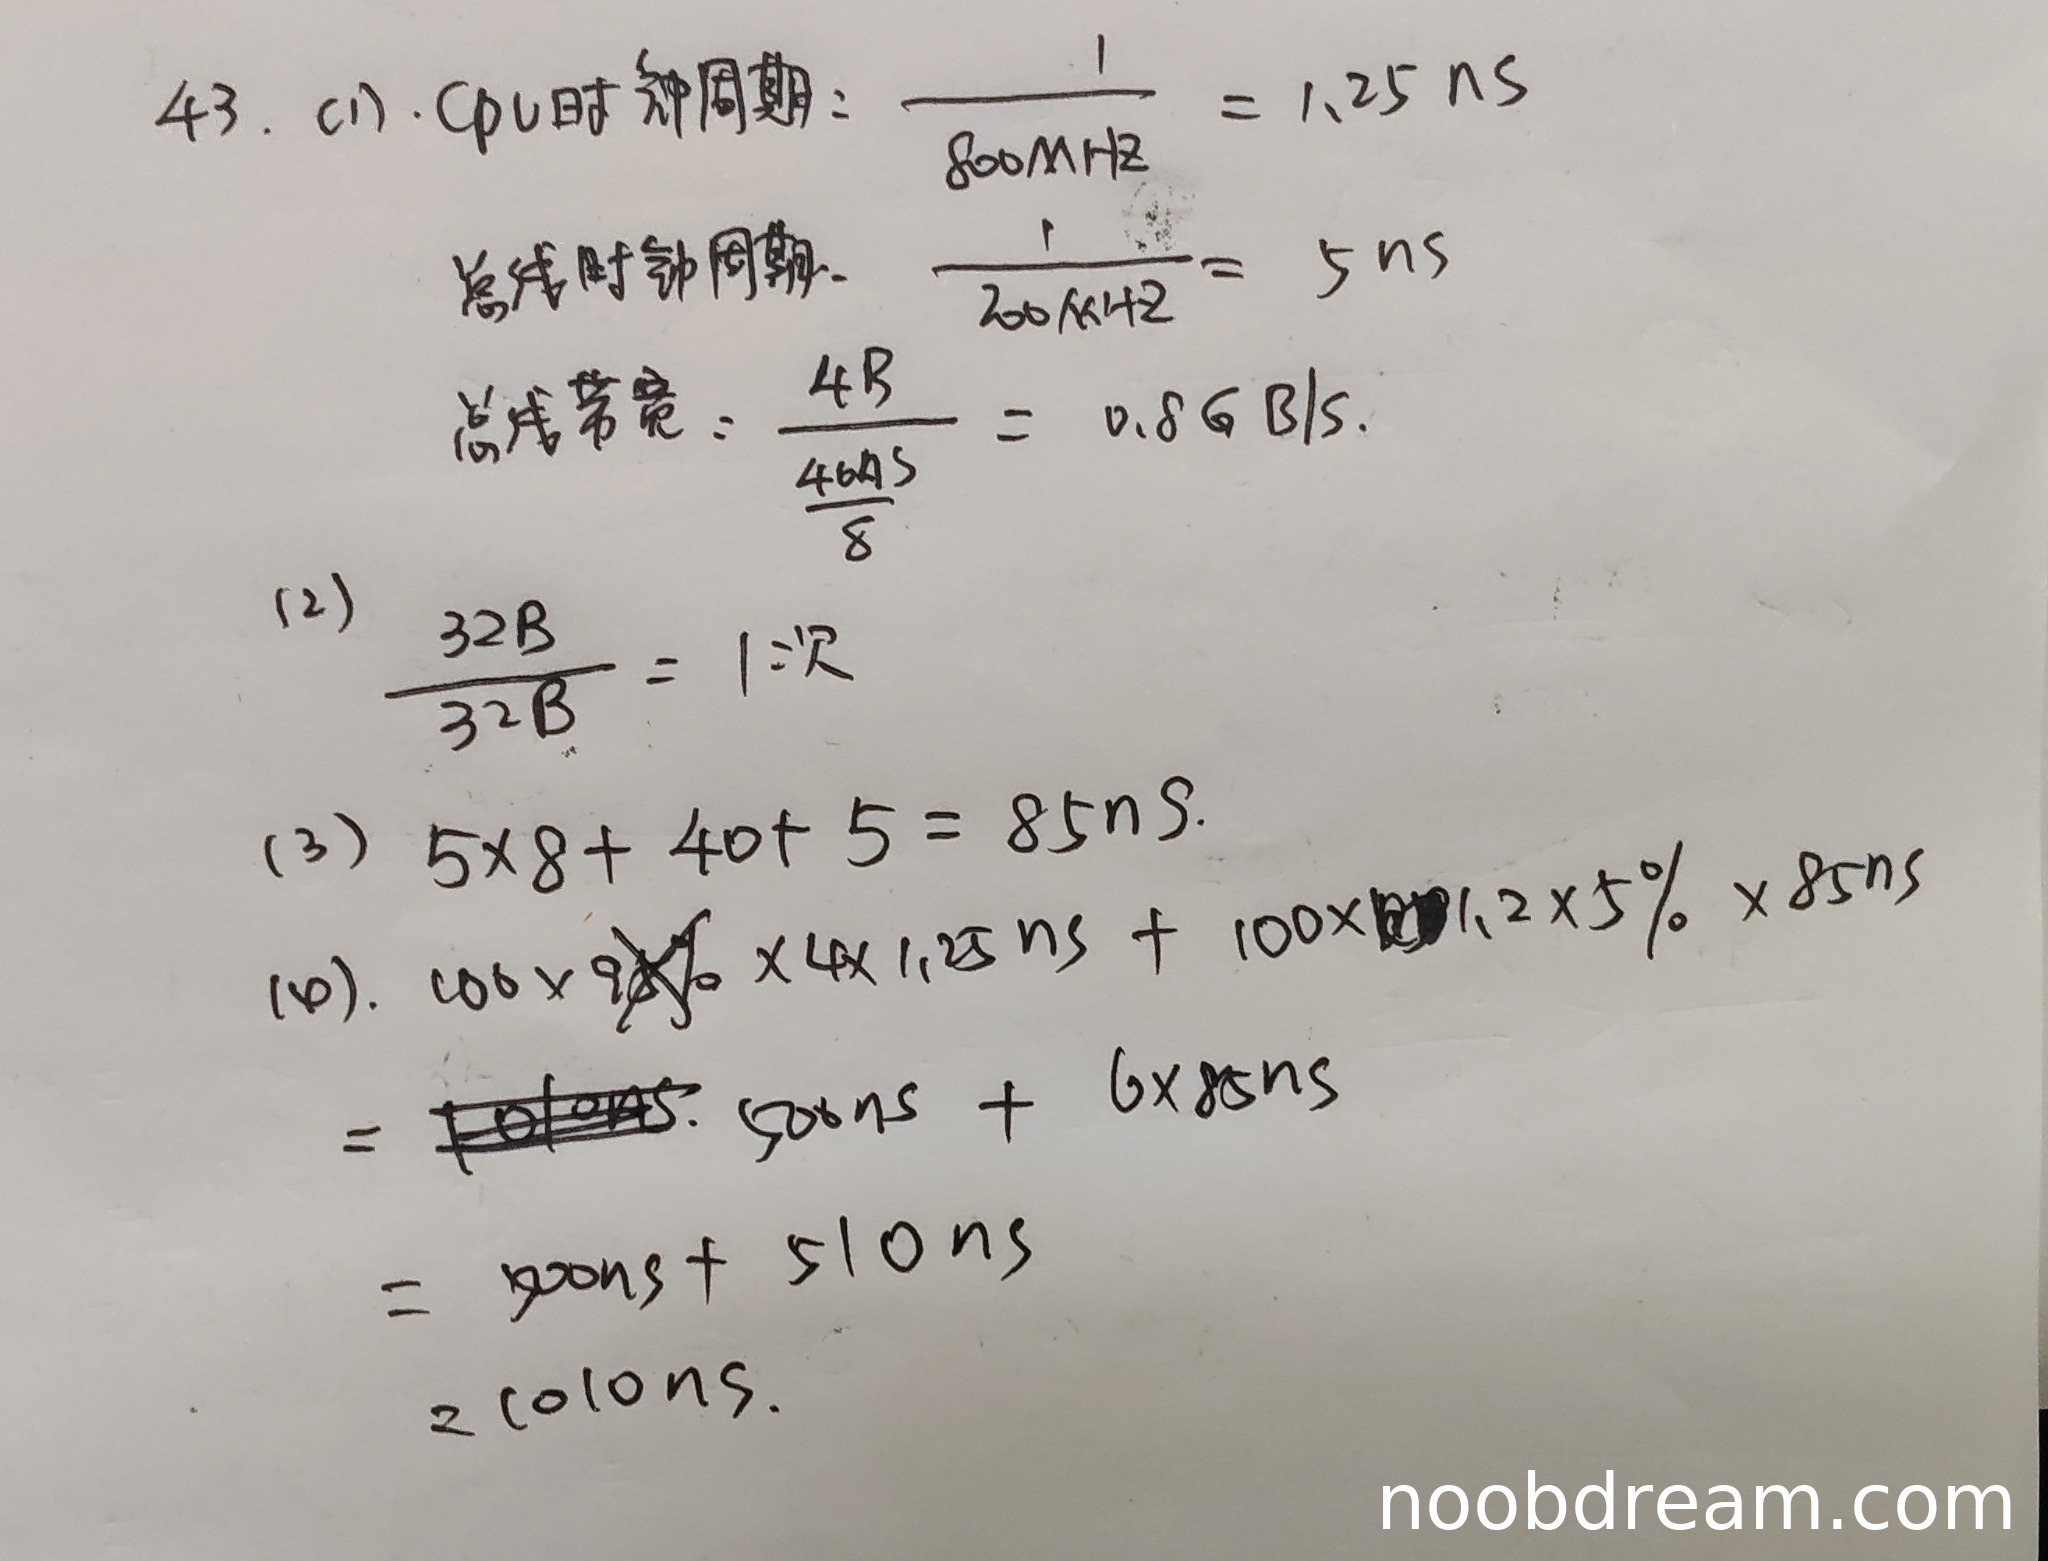 43. (1). CPU时钟周期: 1/800MHZ = 1.25 ns
总线时钟周期. 1/200MHZ = 5 ns
总线带宽: 4B/(40ns/8) = 0.8GB/s.
(2) 32B/32B = 1次
(3) 5×8+40+5=85ns.
(4). 100× ×4×1.25ns + 100×1.2×5%×85ns
= 500ns + 6×85ns
= 500ns + 510ns
= 1010ns.
noobdream.com